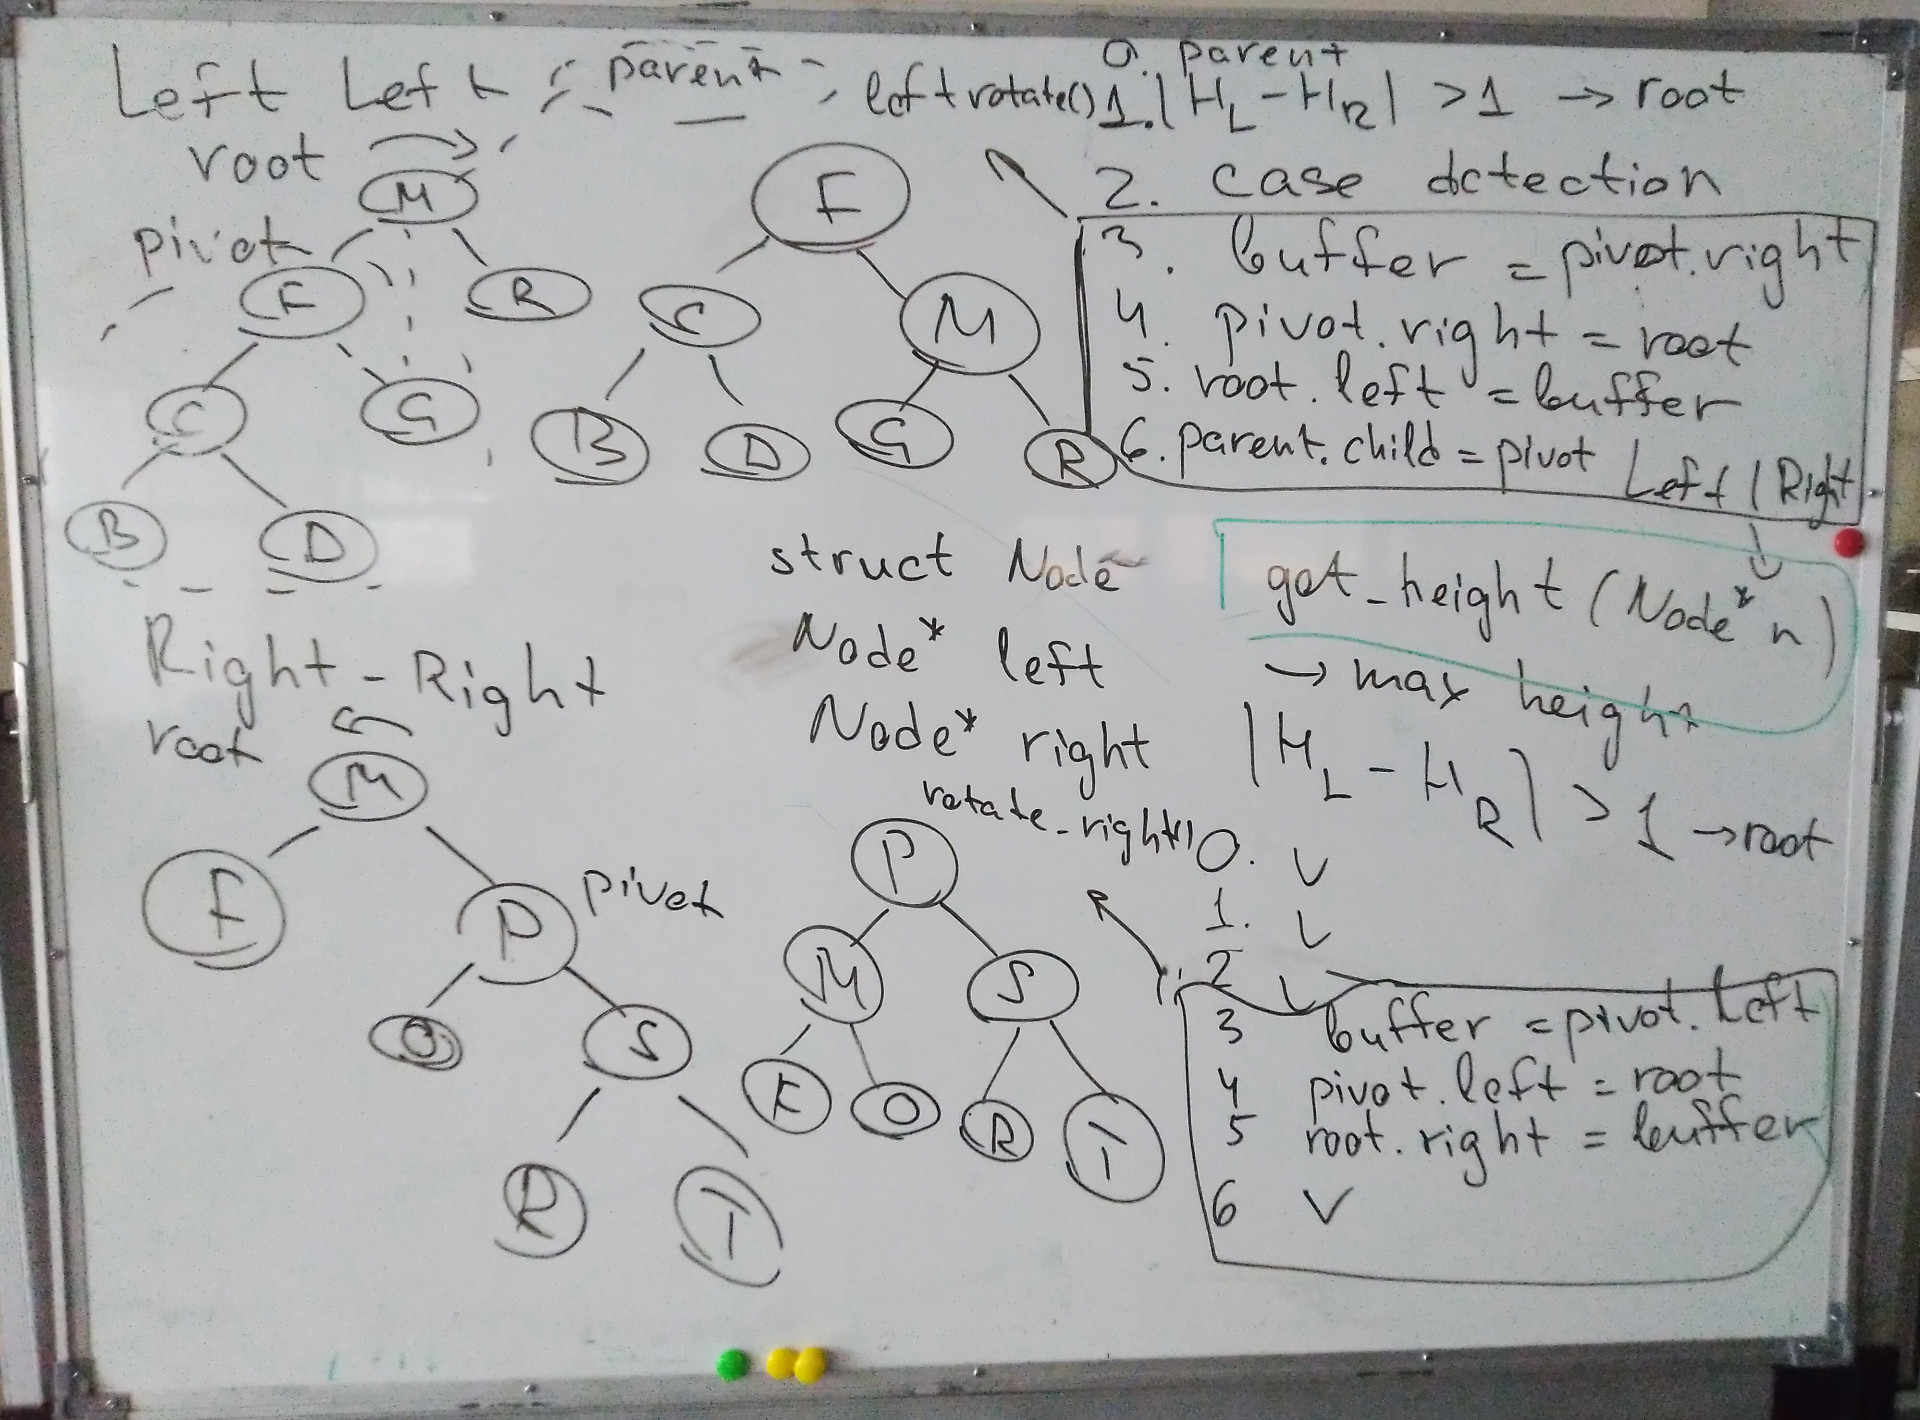 Left Left
parent
left rotate()
0. parent
1. |H_L - H_R| > 1 → root
2. case detection
3. buffer = pivot.right
4. pivot.right = root
5. root.left = buffer
6. parent.child = pivot
Left | Right
root
M
pivot
F
R
C
G
B
D
F
C
M
B
D
G
R
struct Node
Node* left
Node* right
get_height (Node* n)
→ max height
|H_L - H_R| > 1 → root
Right - Right
root
M
F
P
pivot
O
S
R
T
rotate_right()
P
M
S
F
O
R
T
0. V
1. V
2 V
3 buffer = pivot.left
4 pivot.left = root
5 root.right = buffer
6 V